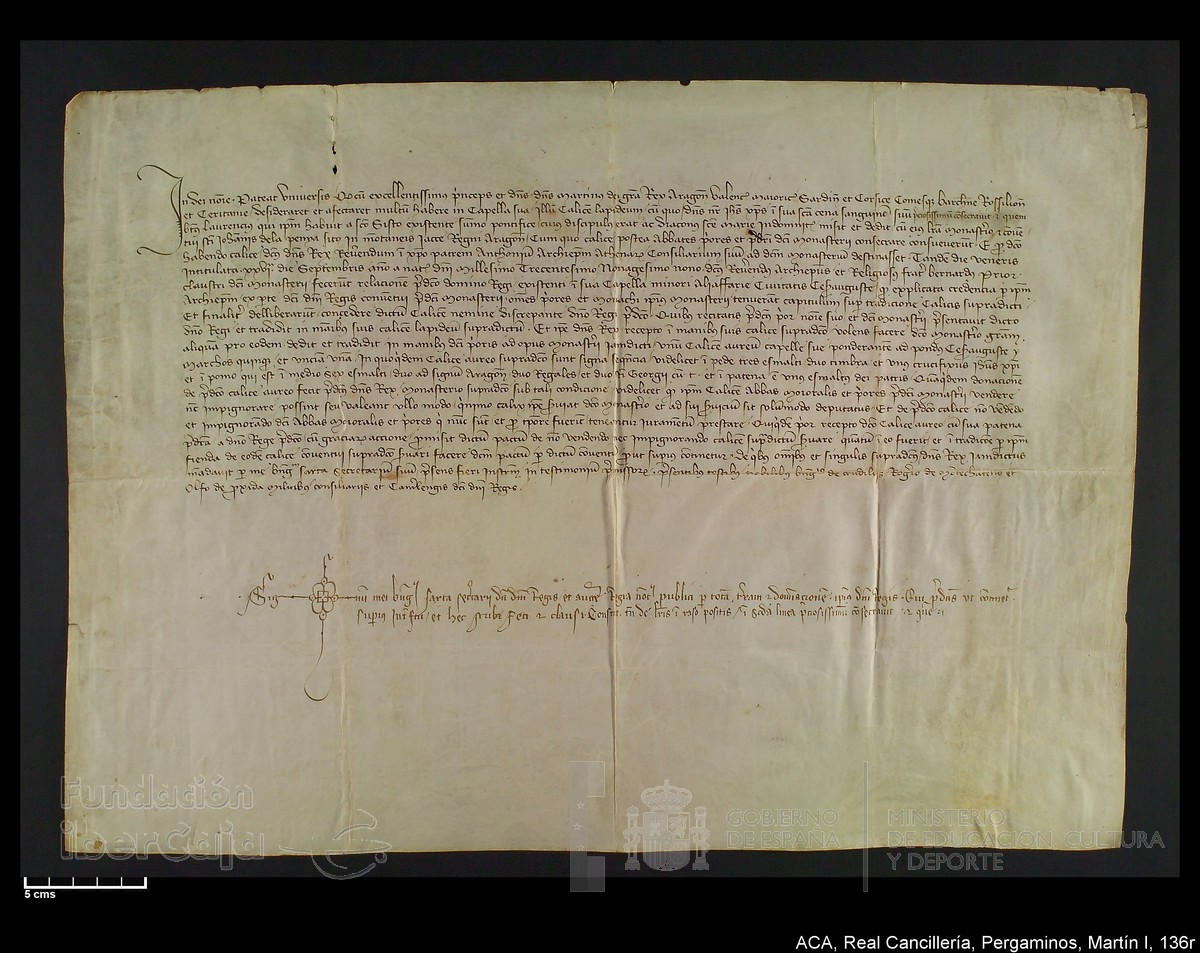 In dei noīe. Pateat Vniversis Qd cū excellentissimus p̄nceps et dn̄s dn̄s Martinus dei gr̄a Rex Aragon̄ Valenc̄ Maioric̄ Sardin̄ et Corsice Comesq̄ barchn̄e Rossilion̄
et Ceritanie desideraret et afectaret multū habere in Capella sua Illū Calicē lapideum cū quo dn̄s nr̄ ihs̄ xps̄ ī sua sc̄a cena sanguinē suū p̄ciosissimū cōsecravit et quem
bt̄us laurencius qui ip̄m habuit a sc̄o Sisto existente sūmo pontifice cuius discipulus erat ac diaconus sc̄e marie Indomnica misit et dedit cū eius lr̄a Monastr̄io et cōve
tui sc̄i Ioh̄anīs dela penya sito in mōtaneis Iacce Regni Aragon̄ Cum quo calice postea Abbates p̄ores et p̄b̄ri dc̄i Monasterii consecrare consueverūt Et p̄ dc̄o
habendo calice dc̄us dn̄s Rex Reverendum ī xp̄o patrem Anthoniū Archiep̄m Athenar̄ Consiliarium suū ad dc̄m monasteriū destinasset Tandē die veneris
Intitulata xxvj die Septembris Anō a nat̄ dn̄i Millesimo Trecentesimo Nonagesimo nono dc̄us Revenduˢ Archiep̄us et Religiosus frat̄ bernardus Prior
claustri dc̄i monasterii fecerūt relacionē p̄dc̄o domino Regi existenti ī sua Capella minori Aliaffarie Civitatis Ces̄auguste qd̄ explicata credencia p̄ ip̄m
Archiep̄m ex pte dc̄i dn̄i Regis conuētui p̄dc̄i Monasterii om̄es p̄ores et monachi ip̄ius Monasterii tenuerūt capitulum sup̄ tradicione Calicis supradicti
Et finalit̄ delliberarūt concedere dictū Calicē nemine discrepante dn̄o Regi p̄dc̄o Quibus recitatis p̄dc̄us p̄or noīe suo et dc̄i monast̄ii p̄sentavit dicto
dn̄o Regi et tradidit in man̄bus suis calicē lapideū supradictū Et ip̄e dn̄s Rex recepto ī manibus suis calice supradc̄o volens facere dc̄o monast̄io gr̄am
aliquā pro eodem dedit et tradidit in manib̄us dc̄i p̄oris ad opus monast̄ii iamdicti vnū Calicē aureū capelle sue ponderantē ad pondus Ces̄auguste v
marchos quinq̄ et vnciā vnā In quoq̄dem Calice aureo supradc̄o sunt signa seq̄ncia videlicet ī pede tres esmalti duo timbra et vnus crucifixus ih̄us xp̄i
et ī pomo qui est ī medio sex esmalti duo ad signū Aragon̄ duo Regales et duo sc̄i Georgii cū t et ī patena ē vnus esmaltus dei patris Quaq̄dem donacionē
de p̄dc̄o calice aureo fecit p̄dc̄us dn̄s Rex Monasterio supradc̄o sub tali condicione videlicet qd̄ ip̄m Calicē Abbas Maioralis et p̄ores p̄dc̄i Monast̄ii vendere
nc̄ impignorare possint seu valeant vllo modo q̄nimo calix ip̄e s̄viat dc̄o Monast̄io et ad sui s̄viciū sit solūmodo deputatus Et de p̄dc̄o calice nō vēdēdo
et impignorādo dc̄i Abbas Maioralis et p̄ores q̄ nūc sūt et p̄ tp̄ore fuerīt teneantur Iuramētū prestare Quiq̄dē p̄or recepto dc̄o Calice aureo cū sua patena
p̄dc̄a a dn̄o Rege p̄dc̄o cū graciar̄ accione p̄misit dictū pactū de nō vendendo nec impignorando calicē sup̄dictū s̄vare quātū ī eo fuerit et ī tradic̄oe p̄ ip̄m
fienda de eodē calice cōventui supradc̄o s̄vari facere dc̄m pactū p̄ dictū cōventū prout sup̄ius cōtinetur de qib̄us om̄ib̄us et singulis supradc̄is dn̄s Rex iamdictus
mādavit p̄ me b̄nḡm Sarta Secretariū suū p̄sens fieri Instr̄m in testimoniū p̄missor̄ p̄sentib̄us testib̄us nobilib̄us
Olfo de p̄xida Militibus consiliariis et Cam̄lengis dc̄i dn̄i Regis.
Sig num mei b̄nḡ Sarta sec̄rarii dc̄i dn̄i Regis et auct̄e Regia not̄ publici p̄ totā t̄ram et dn̄acionē ip̄ius dn̄i Regis Qui p̄dc̄is
sup̄ius Int̄fui et hec scribi feci et clausi Constat em̄ de lr̄is ī raso positis ī Scd̄a linea p̄ciosissimū cōsecravit et quē
Fundación
iberCaja
GOBIERNO
DE ESPAÑA
MINISTERIO
DE EDUCACIÓN, CULTURA
Y DEPORTE
5 cms
ACA, Real Cancillería, Pergaminos, Martín I, 136r